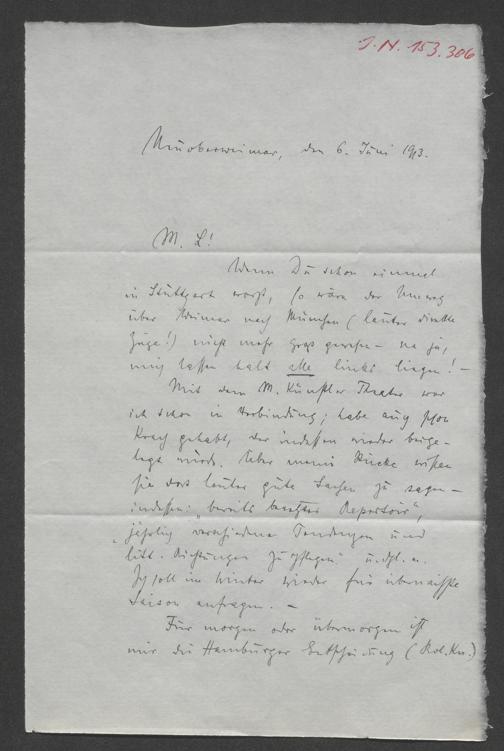 J.N. 153.306
Neuoberweimar, den 6. Juni 1913.
M. L!
Wenn Du schon einmal
in Stuttgart warst, so wäre der Umweg
über Weimar nach München (lauter direkte
Züge!) nicht mehr groß gewesen – na ja,
mich lassen halt alle links liegen! –
Mit dem M. Künstler Theater war
ich schon in Verbindung; habe auch schon
Krach gehabt, der indessen wieder beige-
legt wurde. Ueber meine Stücke wissen
sie dort lauter gute Sachen zu sagen –
indessen: bereits besetztes Repertoir",
"jährlich verschiedene Tendenzen und
litt. Richtungen zu pflegen" u.dgl. m.
Ich soll im Winter wieder für übernächste
Saison anfragen. –
Für morgen oder übermorgen ist
mir die Hamburger Entscheidung (Rol. Kn.)